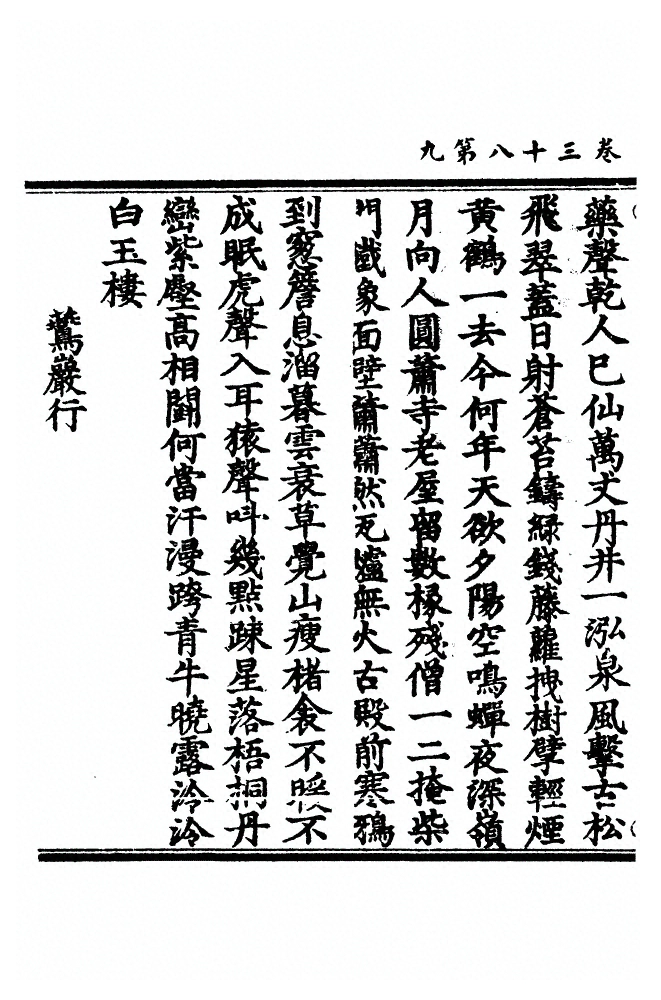 卷三十八第九
藥聲乾人已仙萬丈丹井一泓泉風擊古松
飛翠蓋日射蒼苔鑄綠錢藤蘿拽樹孽輕煙
黃鶴一去今何年天欲夕陽空鳴蟬夜深嶺
月向人圓蕭寺老屋留數椽殘僧一二掩柴
門戲象面壁蕭蕭然死爐無火古殿前寒鴉
到窻簷息溜暮雲衰草覺山瘦楮衾不暖不
成眠虎聲入耳猿聲呌幾點踈星落梧桐丹
巒紫壑高相鬭何當汗漫跨青牛曉露泠泠
白玉樓
鷲巖行